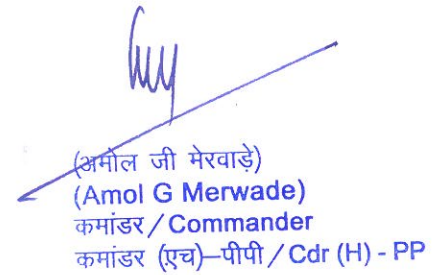 (अमोल जी मेरवाड़े)
(Amol G Merwade)
कमांडर / Commander
कमांडर (एच)–पीपी / Cdr (H) - PP